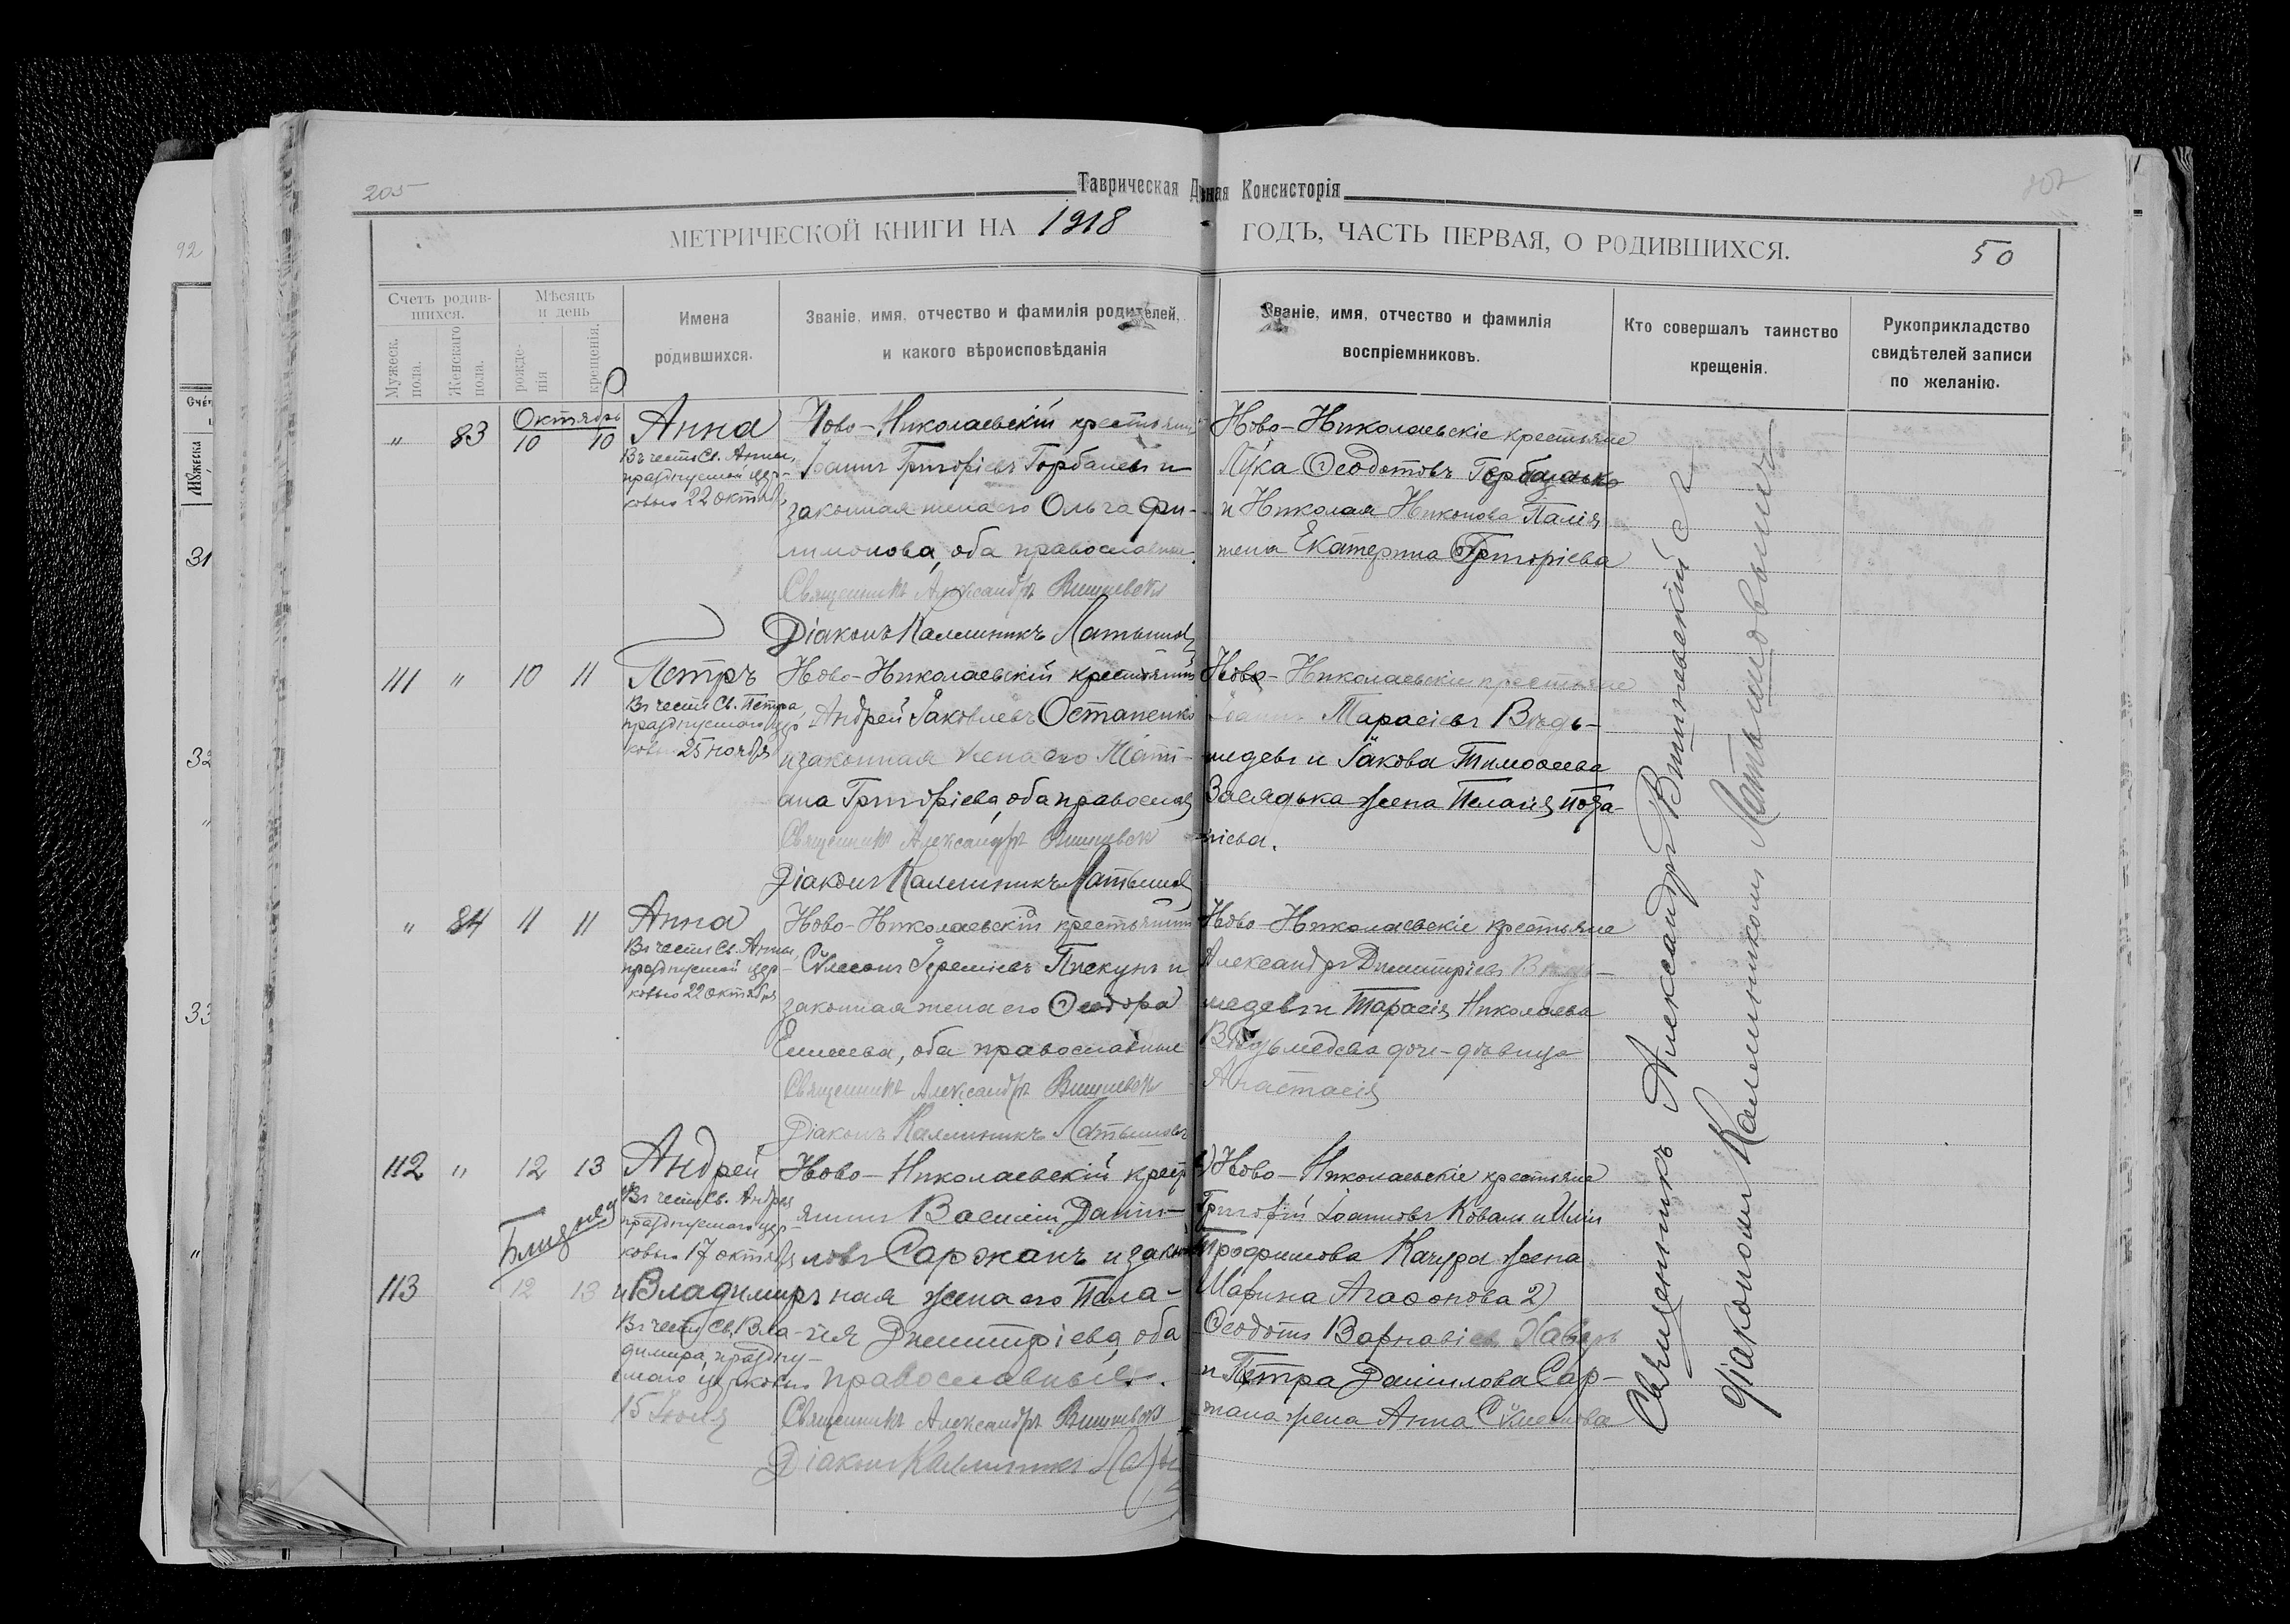 205
Таврическая Д ная Консисторія
МЕТРИЧЕСКОЙ КНИГИ НА 1918 ГОДЪ, ЧАСТЬ ПЕРВАЯ, О РОДИВШИХСЯ.
50
92
Счетъ родив-
шихся.
Мужеск. пола.
Женскаго пола.
Мѣсяцъ
и день
рожде-
нія
крещенія.
Имена
родившихся.
Званіе, имя, отчество и фамилія родителей,
и какого вѣроисповѣданія
Званіе, имя, отчество и фамилія
воспріемниковъ.
Кто совершалъ таинство
крещенія.
Рукоприкладство
свидѣтелей записи
по желанію.
31
32
33
Октябрь
" 83 10 10
Анна
Въ честь Св. Анны,
празднуемой цер-
ковью 22 октября
Ново-Николаевскій крестьянинъ
Іоаннъ Григоріевъ Горбаневъ и
законная жена его Ольга Фи-
лимонова, оба православные.
Священникъ Александръ Вишневск
Діаконъ Каллиникъ Латышов
Ново-Николаевскіе крестьяне
Лука Ѳеодотовъ
и Николая Никонова Палія
жена Екатерина Григоріева
111 " 10 11
Петръ
Въ честь Св. Петра,
празднуемаго цер-
ковью 25 ноября
Ново-Николаевскій крестьянинъ
Андрей Іаковлевъ Остапенко
и законная жена его Тати-
ана Григоріева, оба православ
Священникъ Александръ Вишневск
Діаконъ Каллиникъ Латышов
Ново-Николаевскіе крестьяне
Іоаннъ Тарасіевъ Вѣдь-
медевъ и Іакова Тимоѳеева
Засядька жена Пелагія
ніева.
" 84 11 11
Анна
Въ честь Св. Анны,
празднуемой цер-
ковью 22 октября
Ново-Николаевскій крестьянинъ
Сѵмеонъ Іереміевъ Пискунъ и
законная жена его Ѳеодора
оба православные
Священникъ Александръ Вишневск
Діаконъ Каллиникъ Латышовъ
Ново-Николаевскіе крестьяне
Александръ Димитріевъ Вѣдь-
медевъ и Тарасія Николаева
Вѣдьмедева дочь-дѣвица
Анастасія
112 " 12 13
Андрей
Въ честь Св. Андрея
празднуемаго цер-
ковью 17 октября
Близнецы
113 12 13
и Владимиръ
Въ честь Св. Вла-
димира, праздну-
емаго церковью
15 Іюля
Ново-Николаевскій крест
янинъ Василій Дании-
ловъ Саржанъ и закон
ная жена его Пела-
гія Димитріева, оба
православные.
Священникъ Александръ Вишневск
Діаконъ Каллиникъ Латы
1) Ново-Николаевскіе крестьяне
Григорій Іоанновъ Коваль и Иліи
Трофимова Качура жена
Марина Агаѳонова 2)
Ѳеодотъ Варнавіевъ
и Петра Даниилова Сар-
жана жена Анна Сѵмеонова
Священникъ Александръ Вишневскій
діакономъ Каллиникомъ Латышовымъ